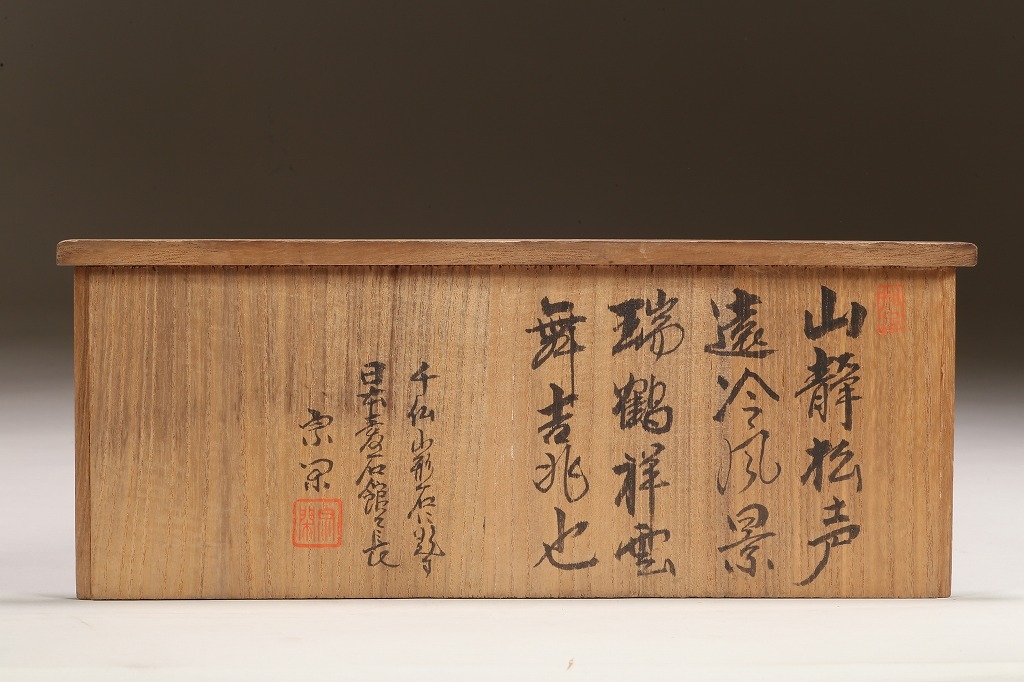 山静松声
遠冷風景
瑞鶴祥雲
舞吉兆也
千仏山形石に題す
日本愛石館々長
宗栄